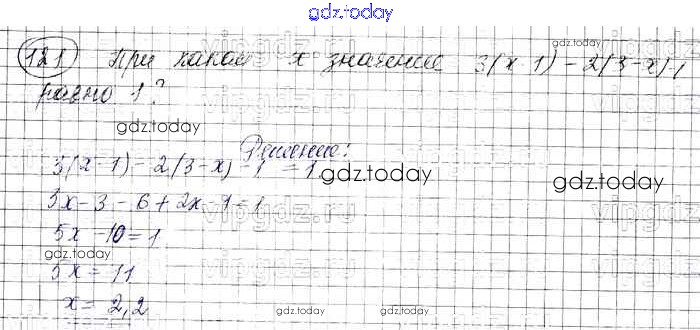 gdz.today
121 При каком x значение 3(x-1)-2(3-x)-1
равно 1?
gdz.today
Решение:
3(x-1)-2(3-x)-1=1
gdz.today
gdz.today
3x-3-6+2x-1=1
vipgdz.ru
5x-10=1
gdz.today
5x=11
x=2,2
gdz.today
gdz.today